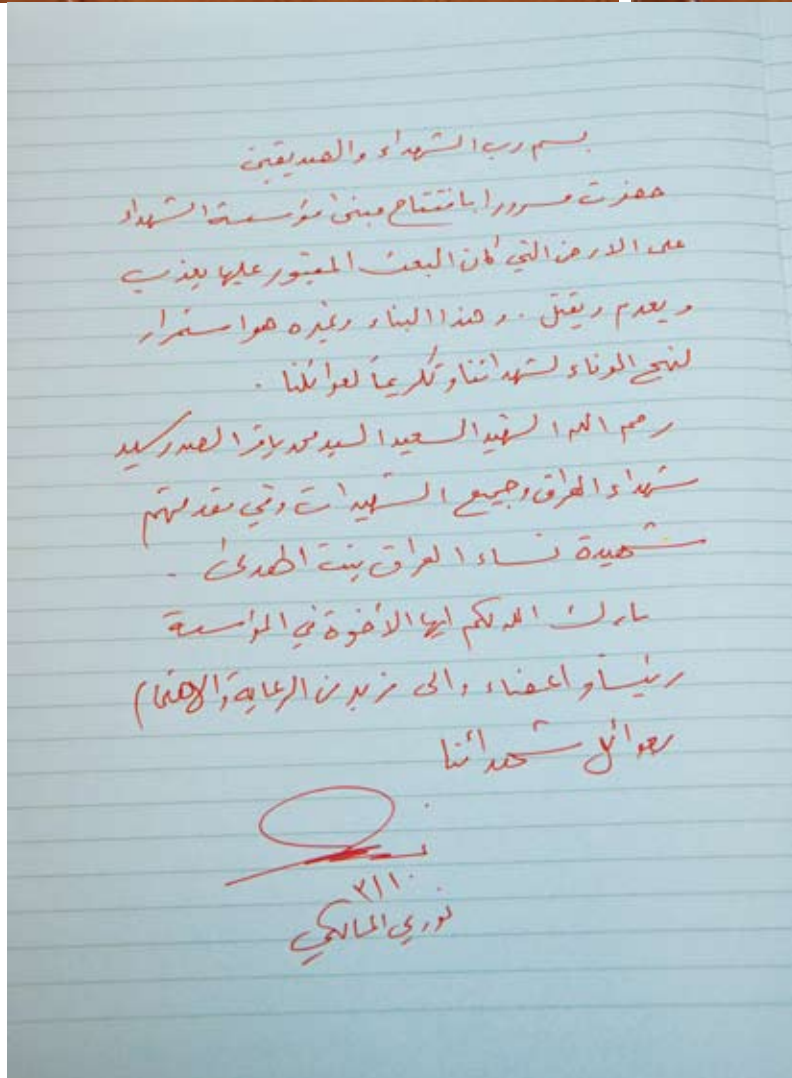 بسم رب الشهداء والصديقين
حضرت مسرورا بافتتاح مبنى مؤسسة الشهداء
على الارض التي كان البعث المقبور عليها يعذب
و يعدم ويقتل . وهذا البناء وغيره هو استمرار
لنهج الوفاء لشهدائنا وتكريماً لعوائلنا .
رحم الله الشهيد السعيد السيد محمد باقر الصدر سيد
شهداء العراق وجميع الشهيدات وفي مقدمتهم
شهيدة نساء العراق بنت الهدى .
بارك الله لكم ايها الأخوة في المؤسسة
رئيساً و اعضاء والى مزيد من الرعاية والاهتمام
بعوائل شهدائنا
٣/١٠
نوري المالكي